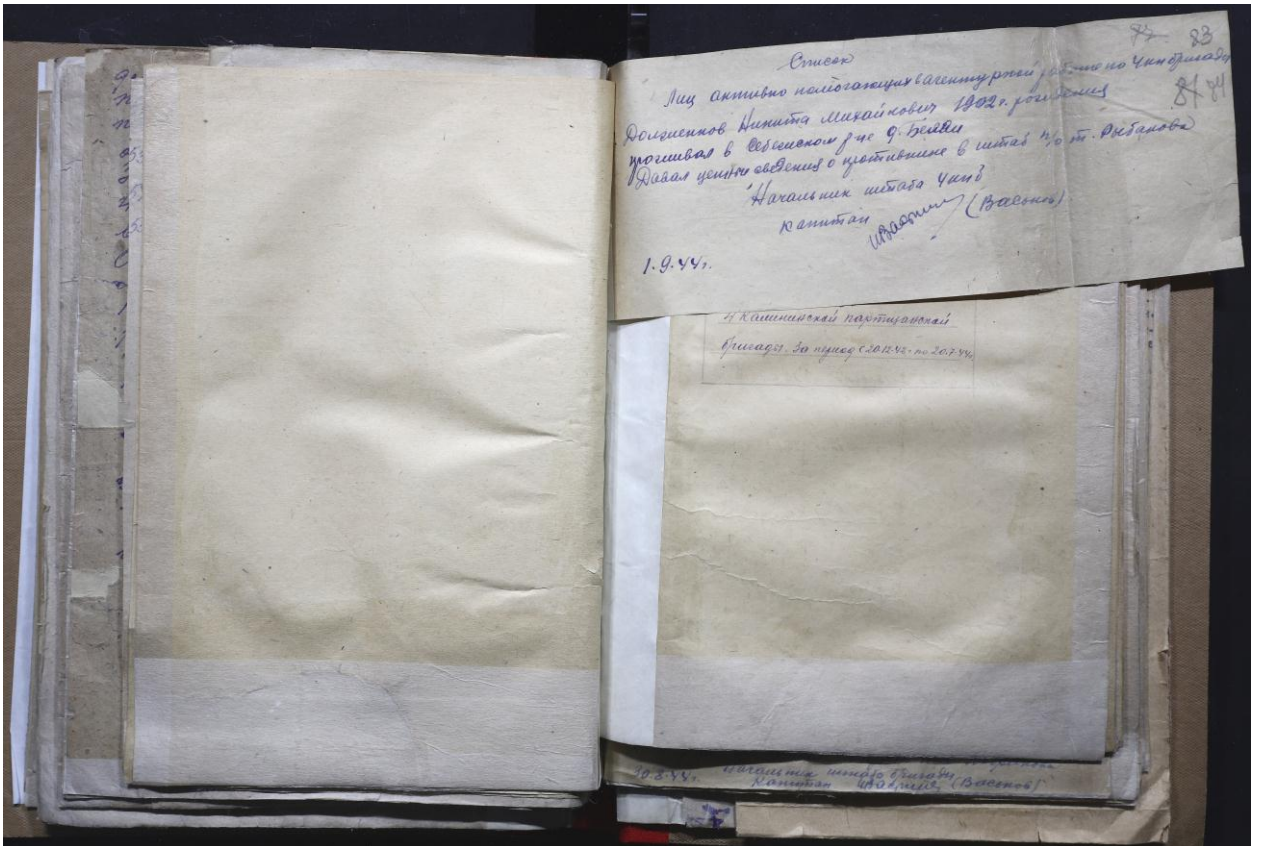 83
81 84
Список
Лиц активно помогающих в агентурной работе по 4 кп бригады
Должненков Никита Михайлович 1902 г. рождения
проживал в Себежском р-не д.
Давал ценные сведения о противнике в штаб п/о т. Рыбакова
Начальник штаба 4 кпб
капитан (Васьков)
1.9.44г.
4 Калининской партизанской
бригады. За период с 20.12.42 г. по 20.7.44г.
30.8.44г. Начальник штаба бригады
Капитан (Васьков)